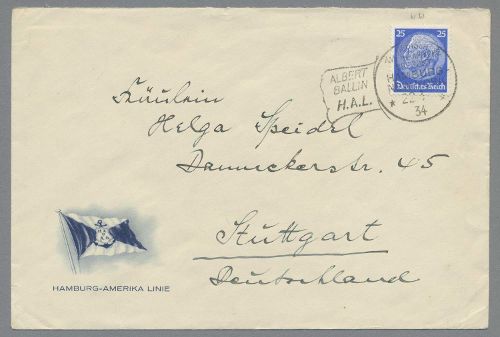 25 25
Deutsches Reich
ALBERT
BALLIN
H.A.L.
34
Fräulein
Helga Speidel
Danneckerstr. 45
Stuttgart
Deutschland
HAMBURG-AMERIKA LINIE